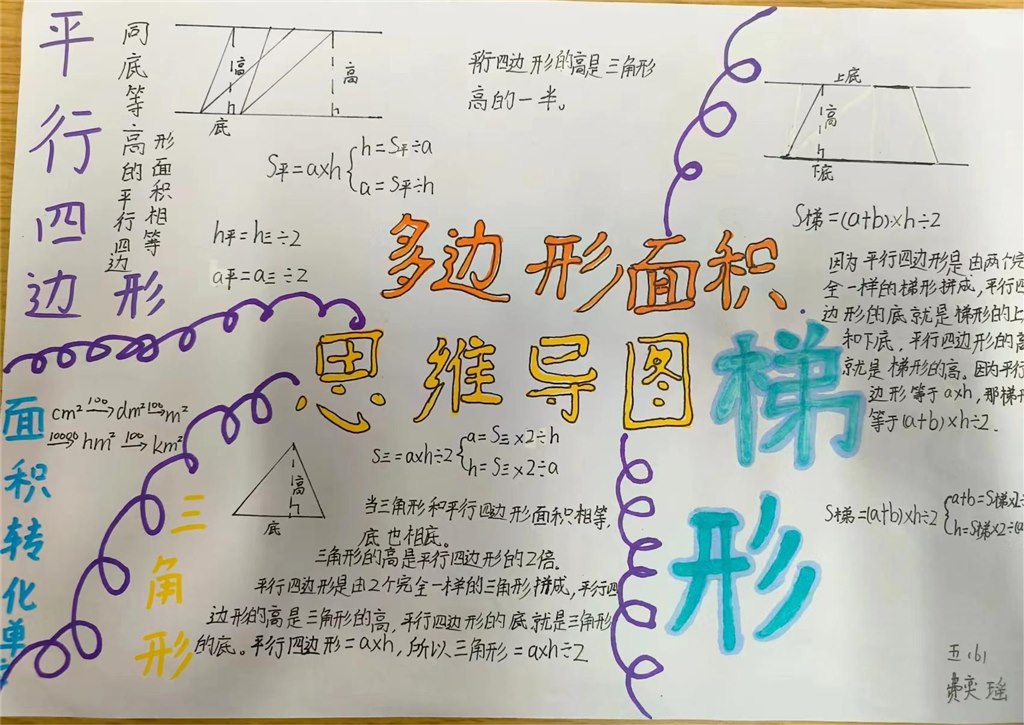 平行四边形
同底等高的平行四边
形面积相等
高
高
h
h
底
平行四边形的高是三角形
高的一半。
S平=a×h
h=S平÷a
a=S平÷h
h平=h三÷2
a平=a三÷2
多边形面积
思维导图
上底
高
h
下底
S梯=(a+b)×h÷2
因为平行四边形是由两个完
全一样的梯形拼成,平行四
边形的底就是梯形的上
和下底,平行四边形的高
就是梯形的高。因为平行
边形等于a×h,那梯形
等于(a+b)×h÷2.
梯形
S梯=(a+b)×h÷2
a+b=S梯×2÷
h=S梯×2÷(a
面积转化单
cm² 100→ dm² 100→ m²
10000→ hm² 100→ km²
三角形
高
h
底
S三=a×h÷2
a=S三×2÷h
h=S三×2÷a
当三角形和平行四边形面积相等,
底也相底。
三角形的高是平行四边形的2倍。
平行四边形是由2个完全一样的三角形拼成,平行四
边形的高是三角形的高,平行四边形的底就是三角形
的底。平行四边形=a×h,所以三角形=a×h÷2
五(6)
费奕瑶